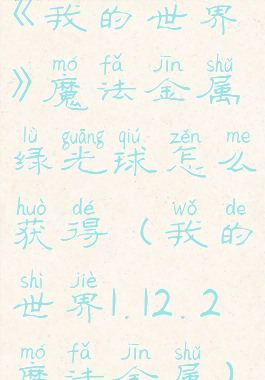 《我的世界
mó fǎ jīn shǔ
》魔法金属
lǜ guāng qiú zěn me
绿光球怎么
huò dé wǒ de
获得(我的
shì jiè
世界1.12.2
mó fǎ jīn shǔ
魔法金属)